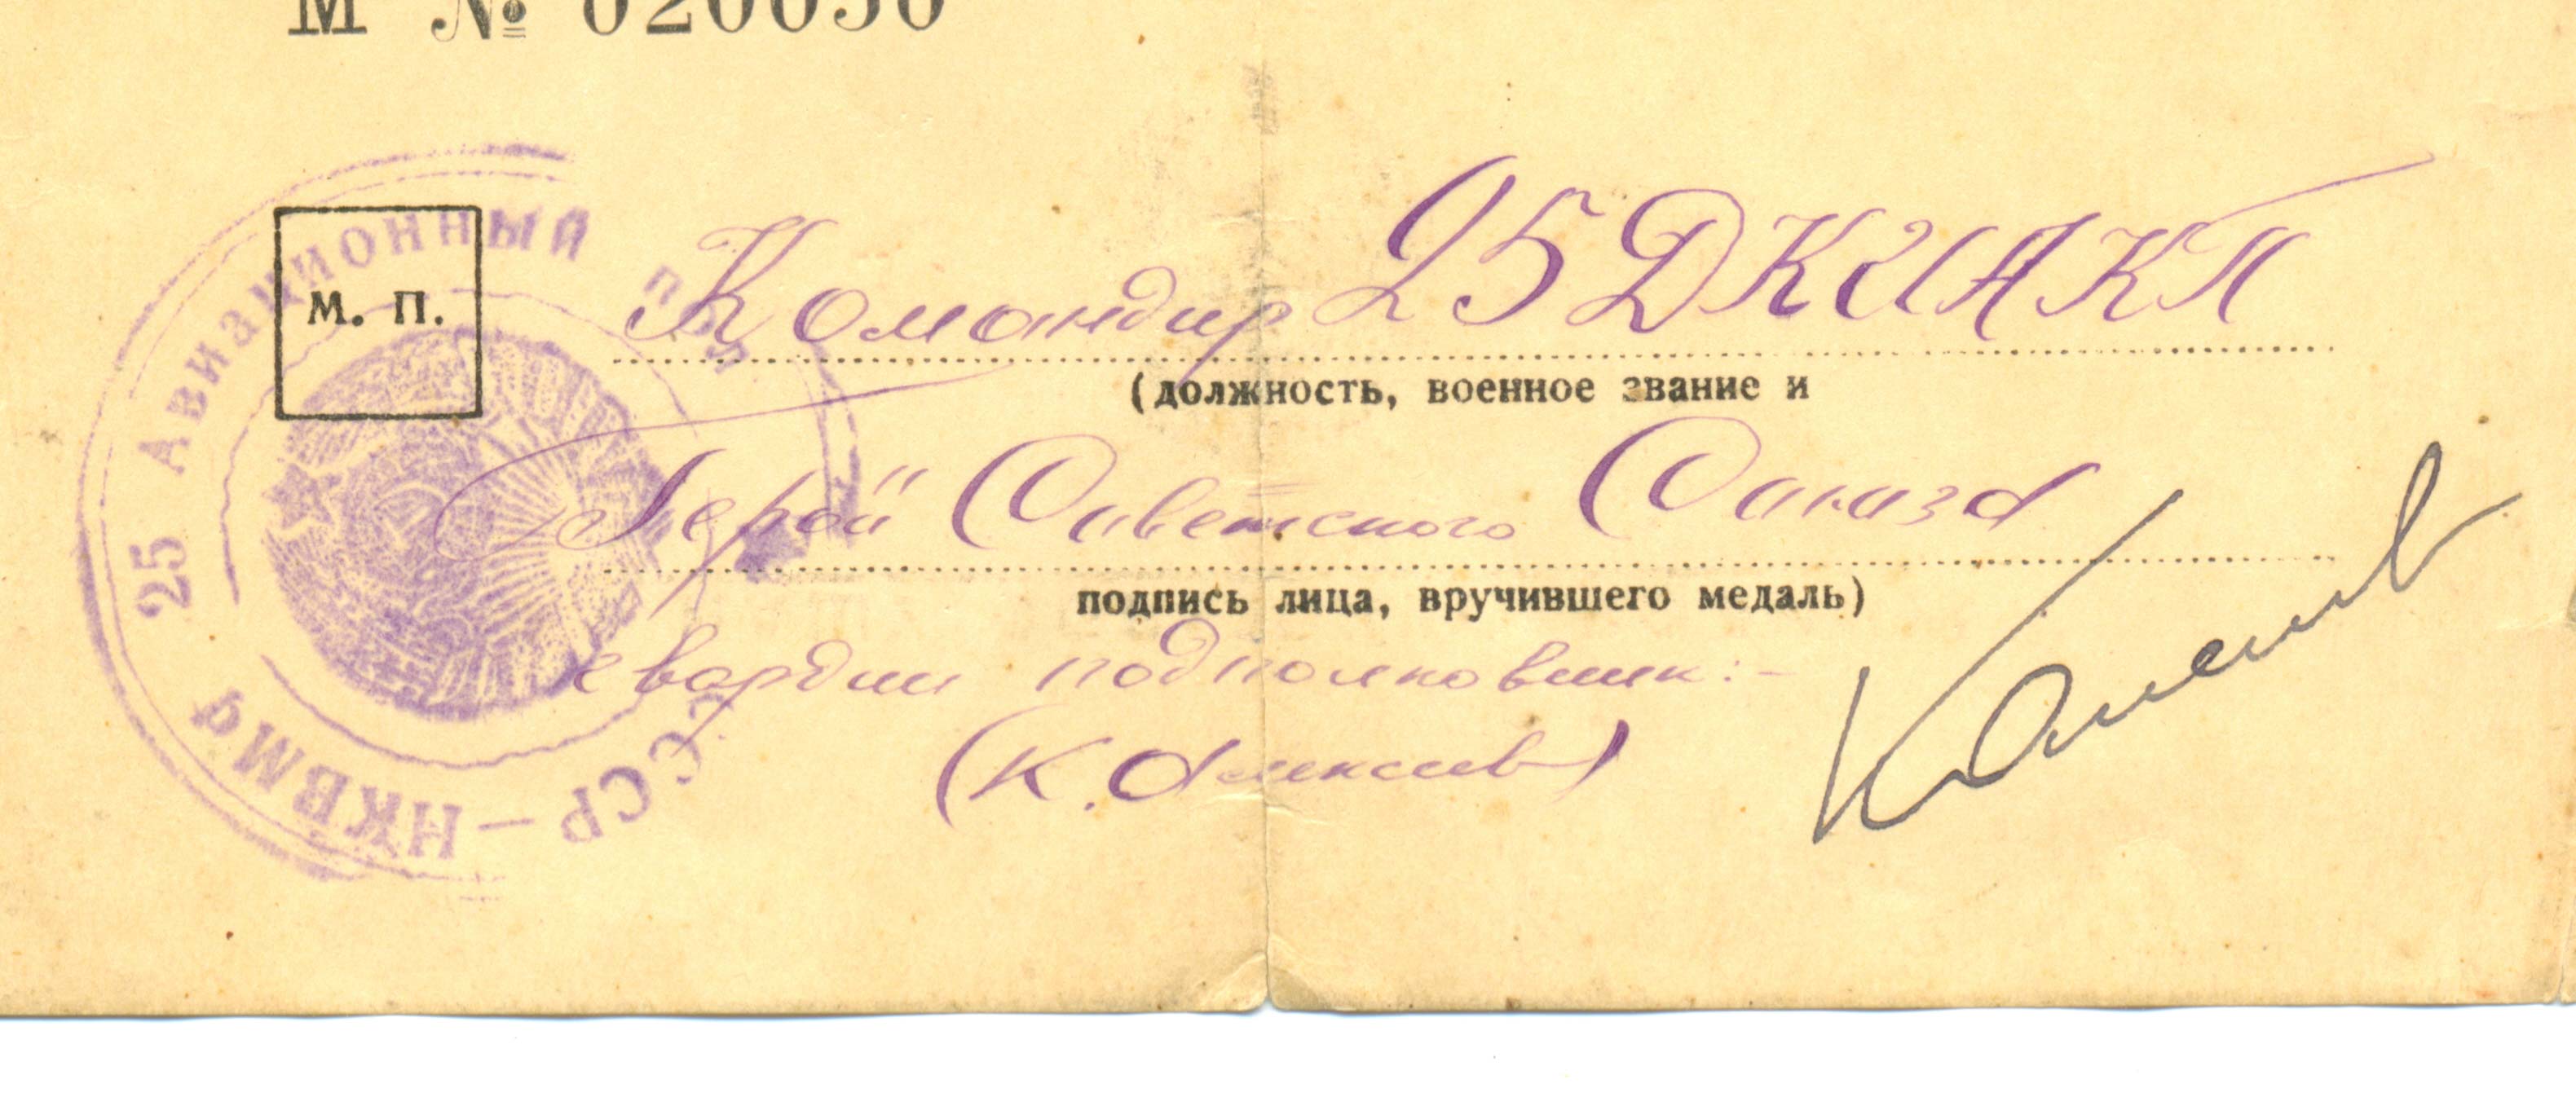 М № 020050
М. П.
25 Авиационный
СССР — НКВМФ
Командир 25 ДКИАКП
(должность, военное звание и
Герой Советского Союза
подпись лица, вручившего медаль)
гвардии подполковник:-
(К. Алексеев)